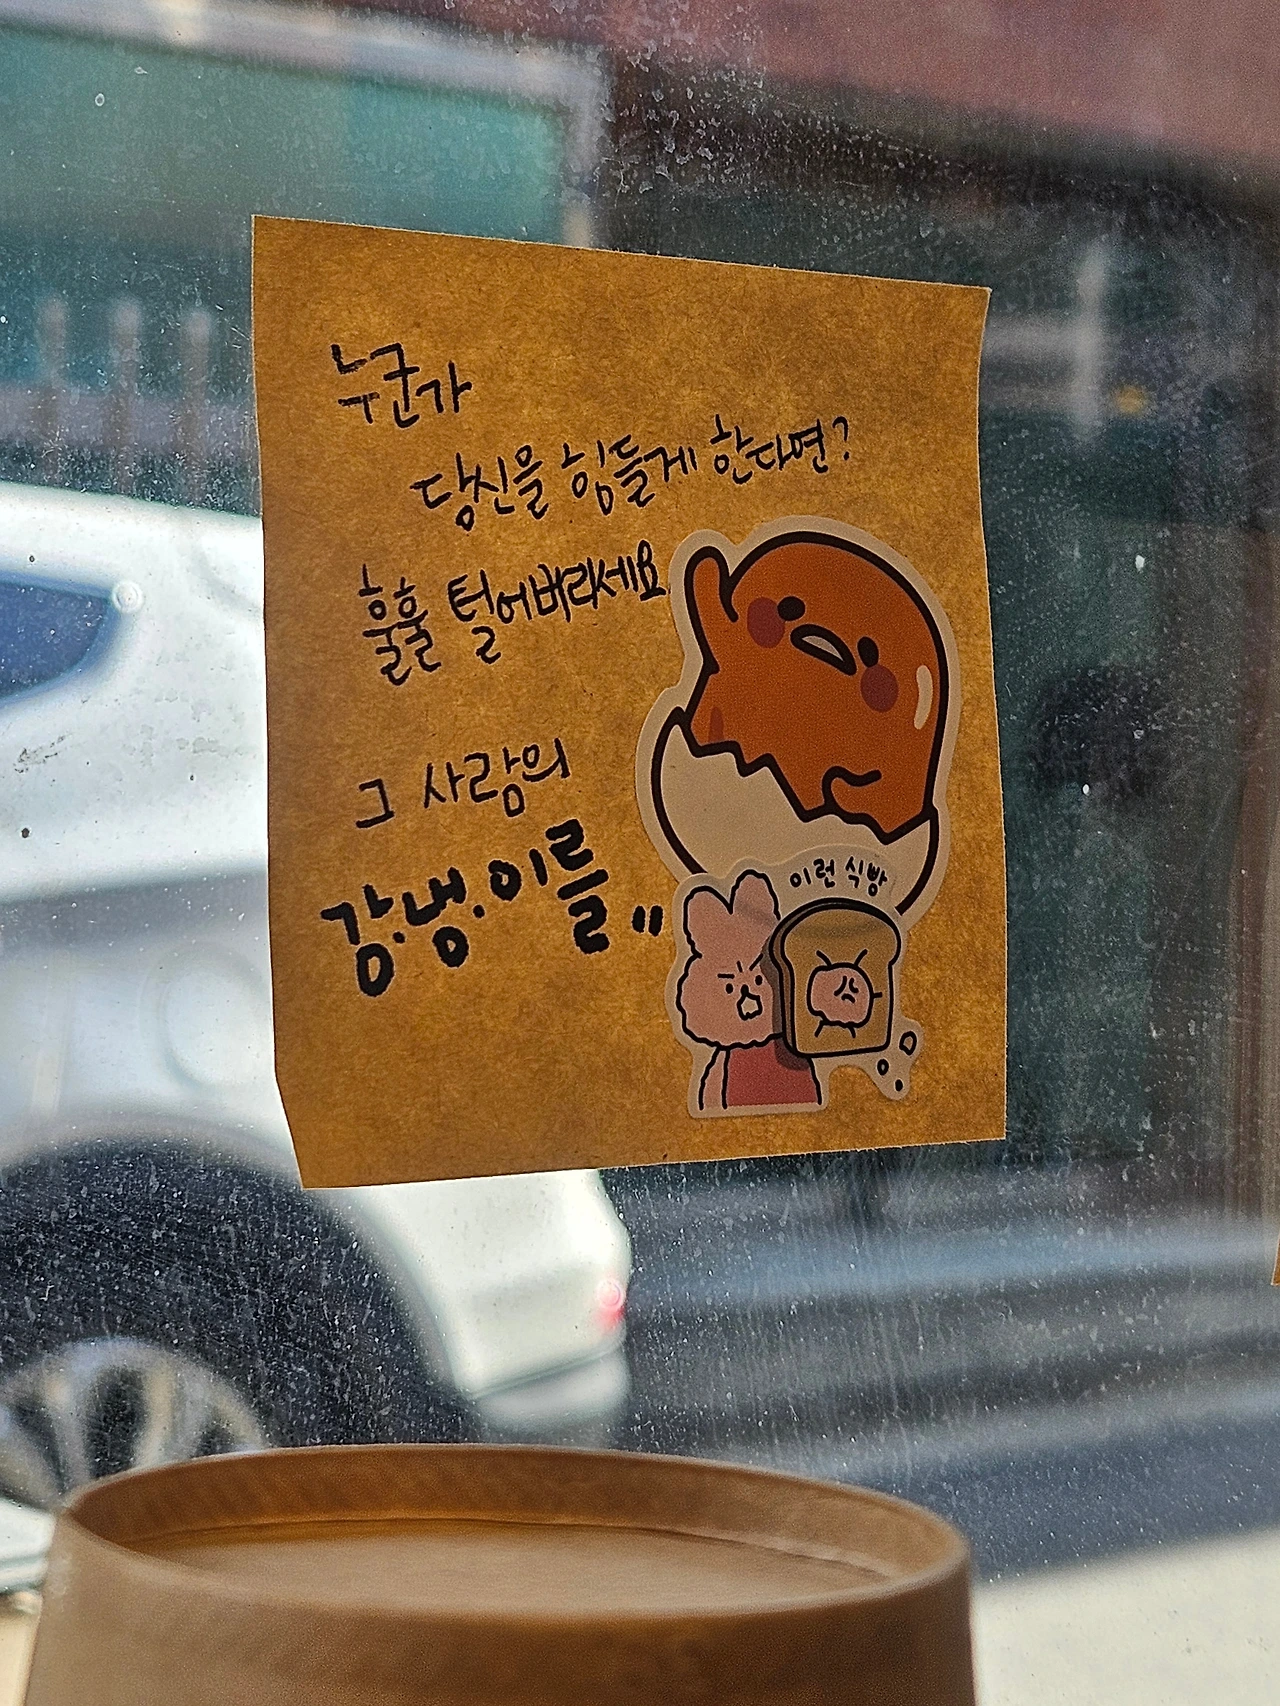 누군가
당신을 힘들게 한다면?
훌훌 털어버리세요
그 사람의
강.냉.이를"
이런 식빵